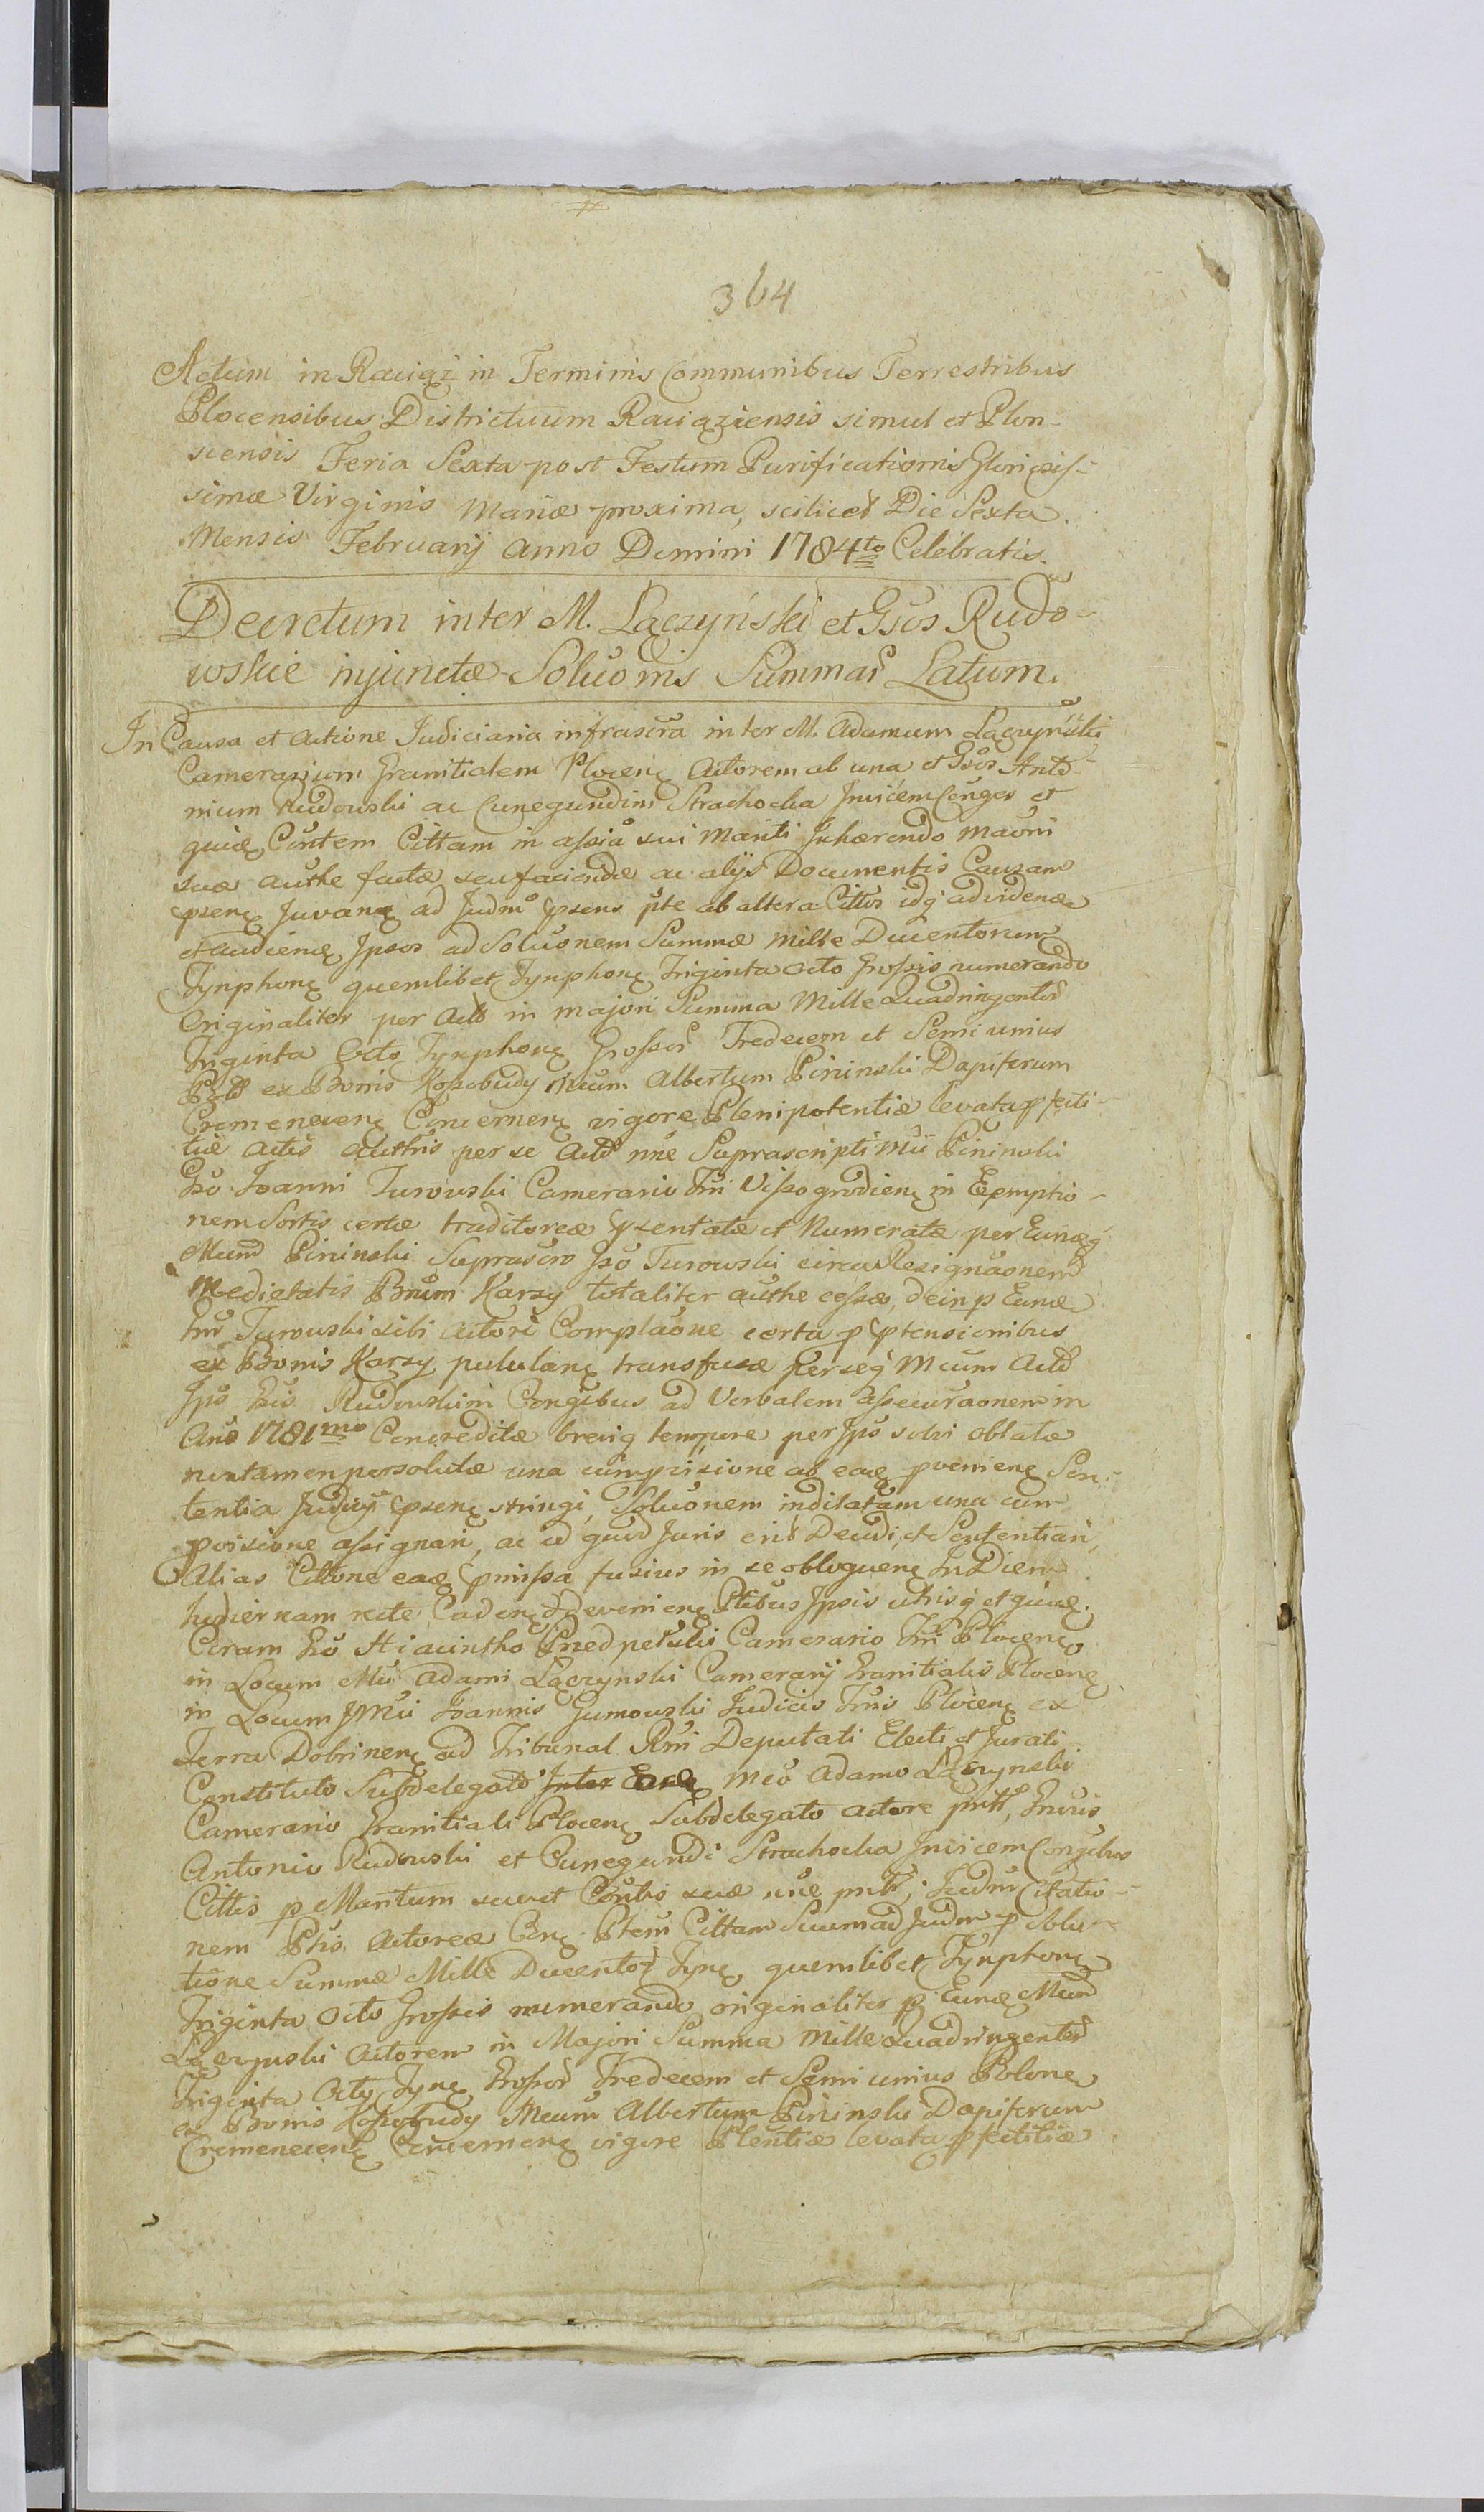 364
Actum in Raciąż in Terminis Communibus Terrestribus
Plocensibus Districtuum Raciążiensis simul et Plon-
scensis Feria Sexta post Festum Purificationis Gloriosis-
simæ Virginis Mariæ proxima, scilicet Die Sexta
Mensis Februarij Anno Domini 1784to Celebratis.
Decretum inter M. Łączyński et Gsos Rudo-
wskie injunctæ Soluōnis Summæ Latum.
In Causa et Actione Judiciaria infrascra inter M. Adamum Łączyński
Camerarium Granitialem Plocen Actorem ab una et Gsos Anto-
nium Rudowski ac Cunegundim Strachocka Invicem Conges et
quidē Contem Cittam in assia sui Mariti Inhærendo
suæ authe factæ seu faciendæ ac alijs Documentis Causam
psen Juvan ad Judm psens pte ab altera Cittos idq ad viden
et audien Ipsos ad Soluonem Summæ Mille Ducentorum
Tynphon quemlibet Tynphon Triginta Octo Grossis numerando
Originaliter per Act in majori Summa Mille Quadringentor
Triginta Octo Tynphon Grossor Tredecem et Semi unius
ex Bonis Kozobudy Mcum Albertum Pininski Dapiferum
Cremenecen Concernen vigore Plenipotentiæ levata p fecti-
tiæ Actis Authis per se Act nne Suprascripti Mci Pininski
Gso Joanni Turowski Camerario Tri Wissogrodien in Exemptio-
nem Sortis certæ traditoreæ psentatæ et Numeratæ per Eund
Mcum Pininski Suprascro Gso Turowski circa Resignaonem
Medietatis Bnorum Karsy totaliter authe cessæ, dein p Eund
Turowski sibi Actori Complaone certa p ptensionibus
ex Bonis Karsy pululan transfusæ perseq Mcum Act
Ips Gsis Rudowskim Congibus ad Verbalem assecuraonem in
Ano 1781mo Concreditæ breviq tempore per Ips solvi oblatæ
nontamen persolutæ una cum pvisione ab ead pvenien Sen-
tentia Judicij psen stringi, Soluonem indilatam una cum
pvisione assignari, ac id quod Juris erit Decidi, et Sententiari,
Alias Cittone ead pmissa fusius in se obloquen In Diem
hodiernam recte Caden et devenien Ptibus Ipsis utrisq et quid.
Coram Gso Hiacintho Przedpełski Camerario Tri Plocen
in Locum Mci Adami Łączynski Camerarij Granitialis Plocen
in Locum JMci Joannis Gumowski Judicis Tris Plocen ex
Terra Dobrinen ad Tribunal Rni Deputati Electi et Jurati
Constituto Subdelegato Mco Adamo Łączynski
Camerario Granitiali Plocen Subdelegato Actore pntt,
Antonio Rudowski et Cunegundi Strachocka Invicem Congibus
Cittis p Maritum suum et Contis suæ nne pntt; Judm Citatio-
nem Ptis Actoreæ Pten Cittam Suum ad Judm p Solu-
tione Summæ Mille Ducentor Tyn quemlibet Tynphon
Triginta Octo Grossis numerando originaliter p Eund Mcum
Łączynski Actorem in Majori Summa Mille Quadringentor
Triginta Octo Tyn Grossor Tredecem et Semi unius Polon
ex Bonis Kozobudy Mcum Albertum Pininski Dapiferum
Cremenecen Concernen vigore Plentiæ levata p fectitiæ